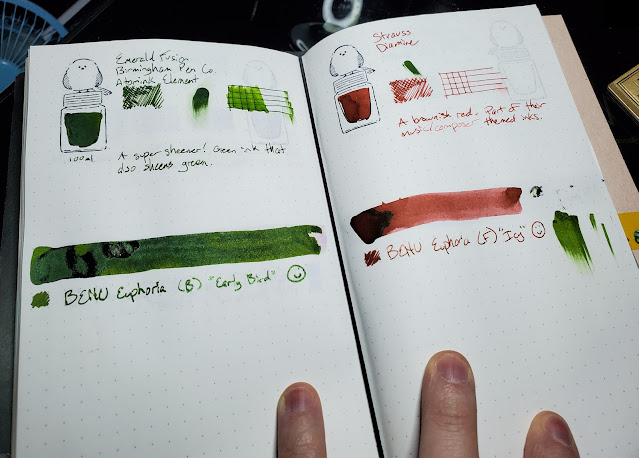 Emerald Fusion
Birmingham Pen Co.
Atomink Element
100ml
A super sheener! Green ink that
also sheens green.
BENU Euphoria (B) "Early Bird"
Strauss
Diamine
A brownish red. Part of their
music/composer themed inks.
BENU Euphoria (F) "Icy"